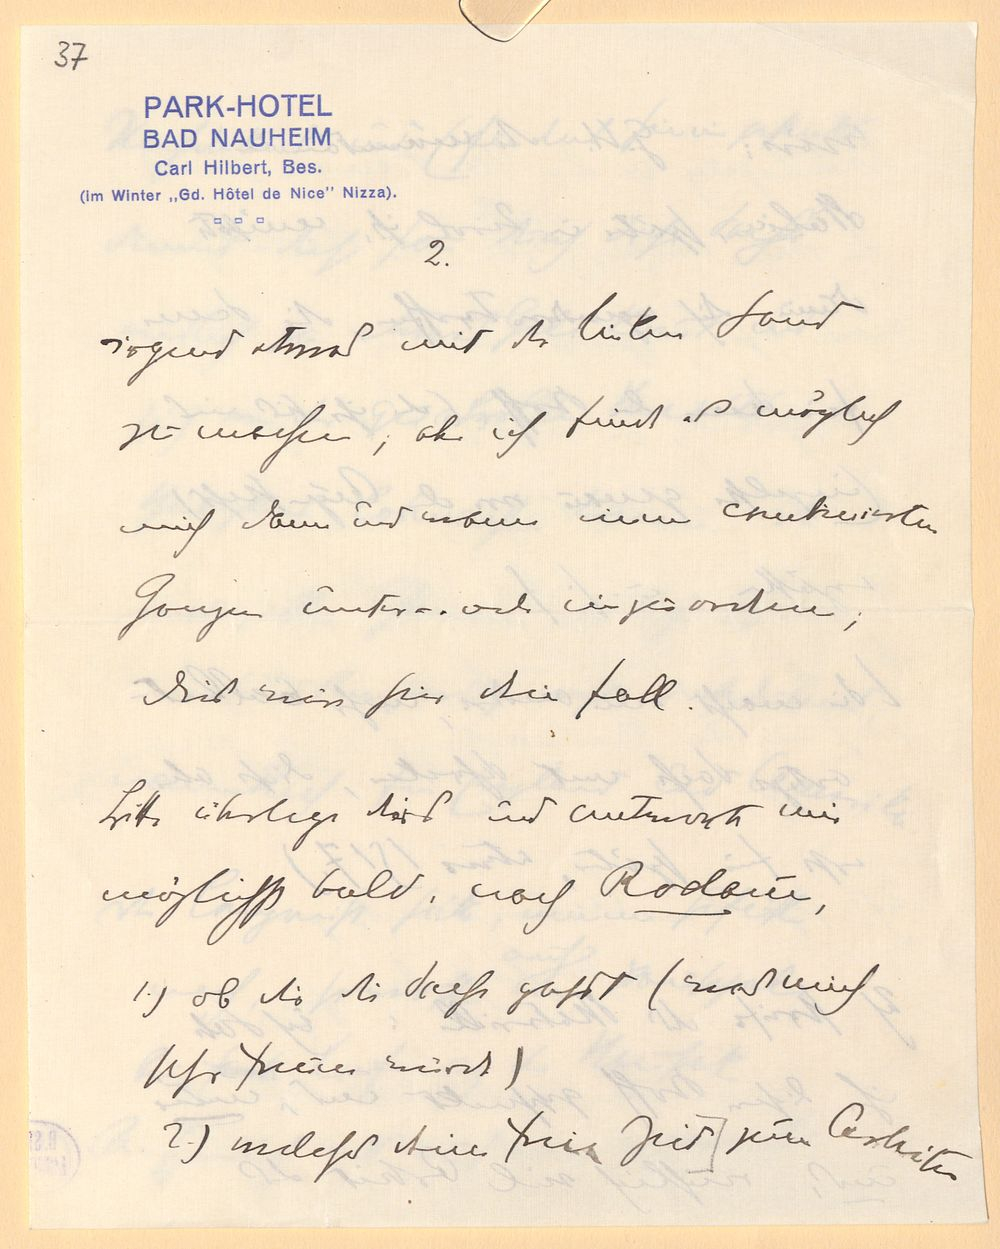 37
PARK-HOTEL
BAD NAUHEIM
Carl Hilbert, Bes.
(im Winter „Gd. Hôtel de Nice" Nizza).
2.
irgend etwas mit der linken Hand
zu machen; aber ich finde es möglich
mich dann und wann einem
Ganzen unter- oder einzuordnen;
dies wäre hier der Fall.
Bitte überlege dies und antworte mir
möglichst bald, nach Rodaun,
1.) ob dir die Sache passt (was mich
sehr freuen würde)
2.) welches deine freie Zeit zum Arbeiten